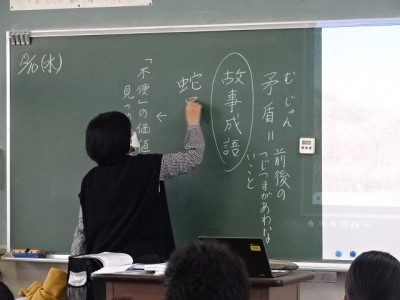 むじゅん
矛盾＝前後の
つじつまがあわな
いこと
故事成語
蛇
←
「不便」の価値
見つ
12/10(水)